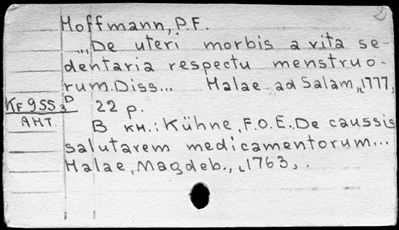 Hoffmann, P.F.
„De uteri morbis a vita se-
dentaria respectu menstruo-
rum. Diss... Halae ad Salam, 1777,
KF 955 3 D 22 p.
АНТ. В кн.: Kühne, F.O.E. De caussis
salutarem medicamentorum...
Halae, Magdeb., 1763, .